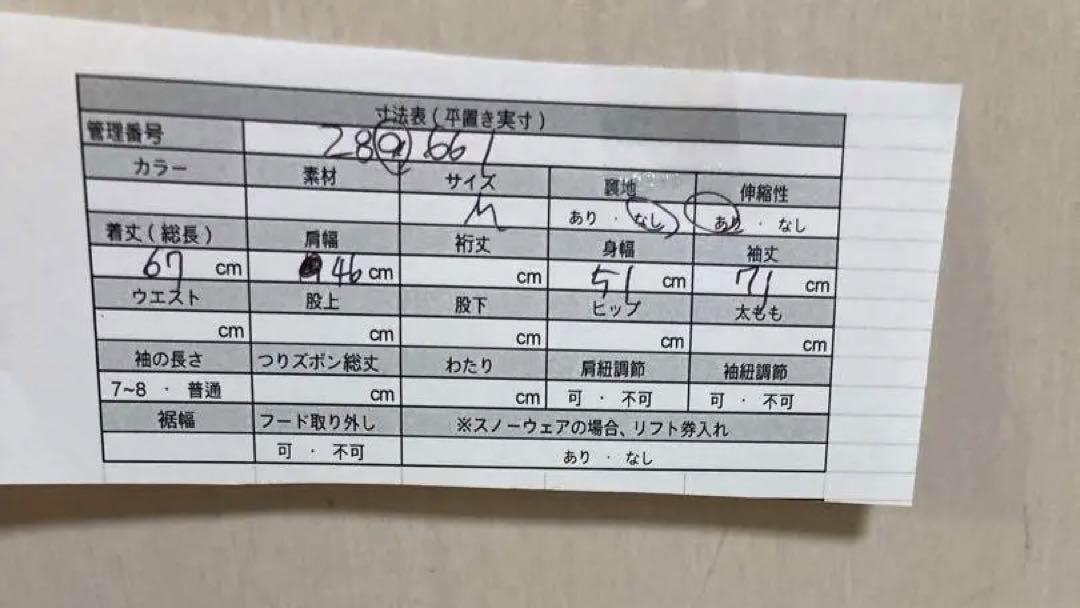 寸法表(平置き実寸)
管理番号 289661
カラー 素材 サイズ 裏地 伸縮性
M あり ・ なし あり ・ なし
着丈(総長) 肩幅 裄丈 身幅 袖丈
67 cm 46 cm cm 51 cm 71 cm
ウエスト 股上 股下 ヒップ 太もも
cm cm cm cm cm
袖の長さ つりズボン総丈 わたり 肩紐調節 袖紐調節
7~8 ・ 普通 cm cm 可 ・ 不可 可 ・ 不可
裾幅 フード取り外し ※スノーウェアの場合、リフト券入れ
可 ・ 不可 あり ・ なし